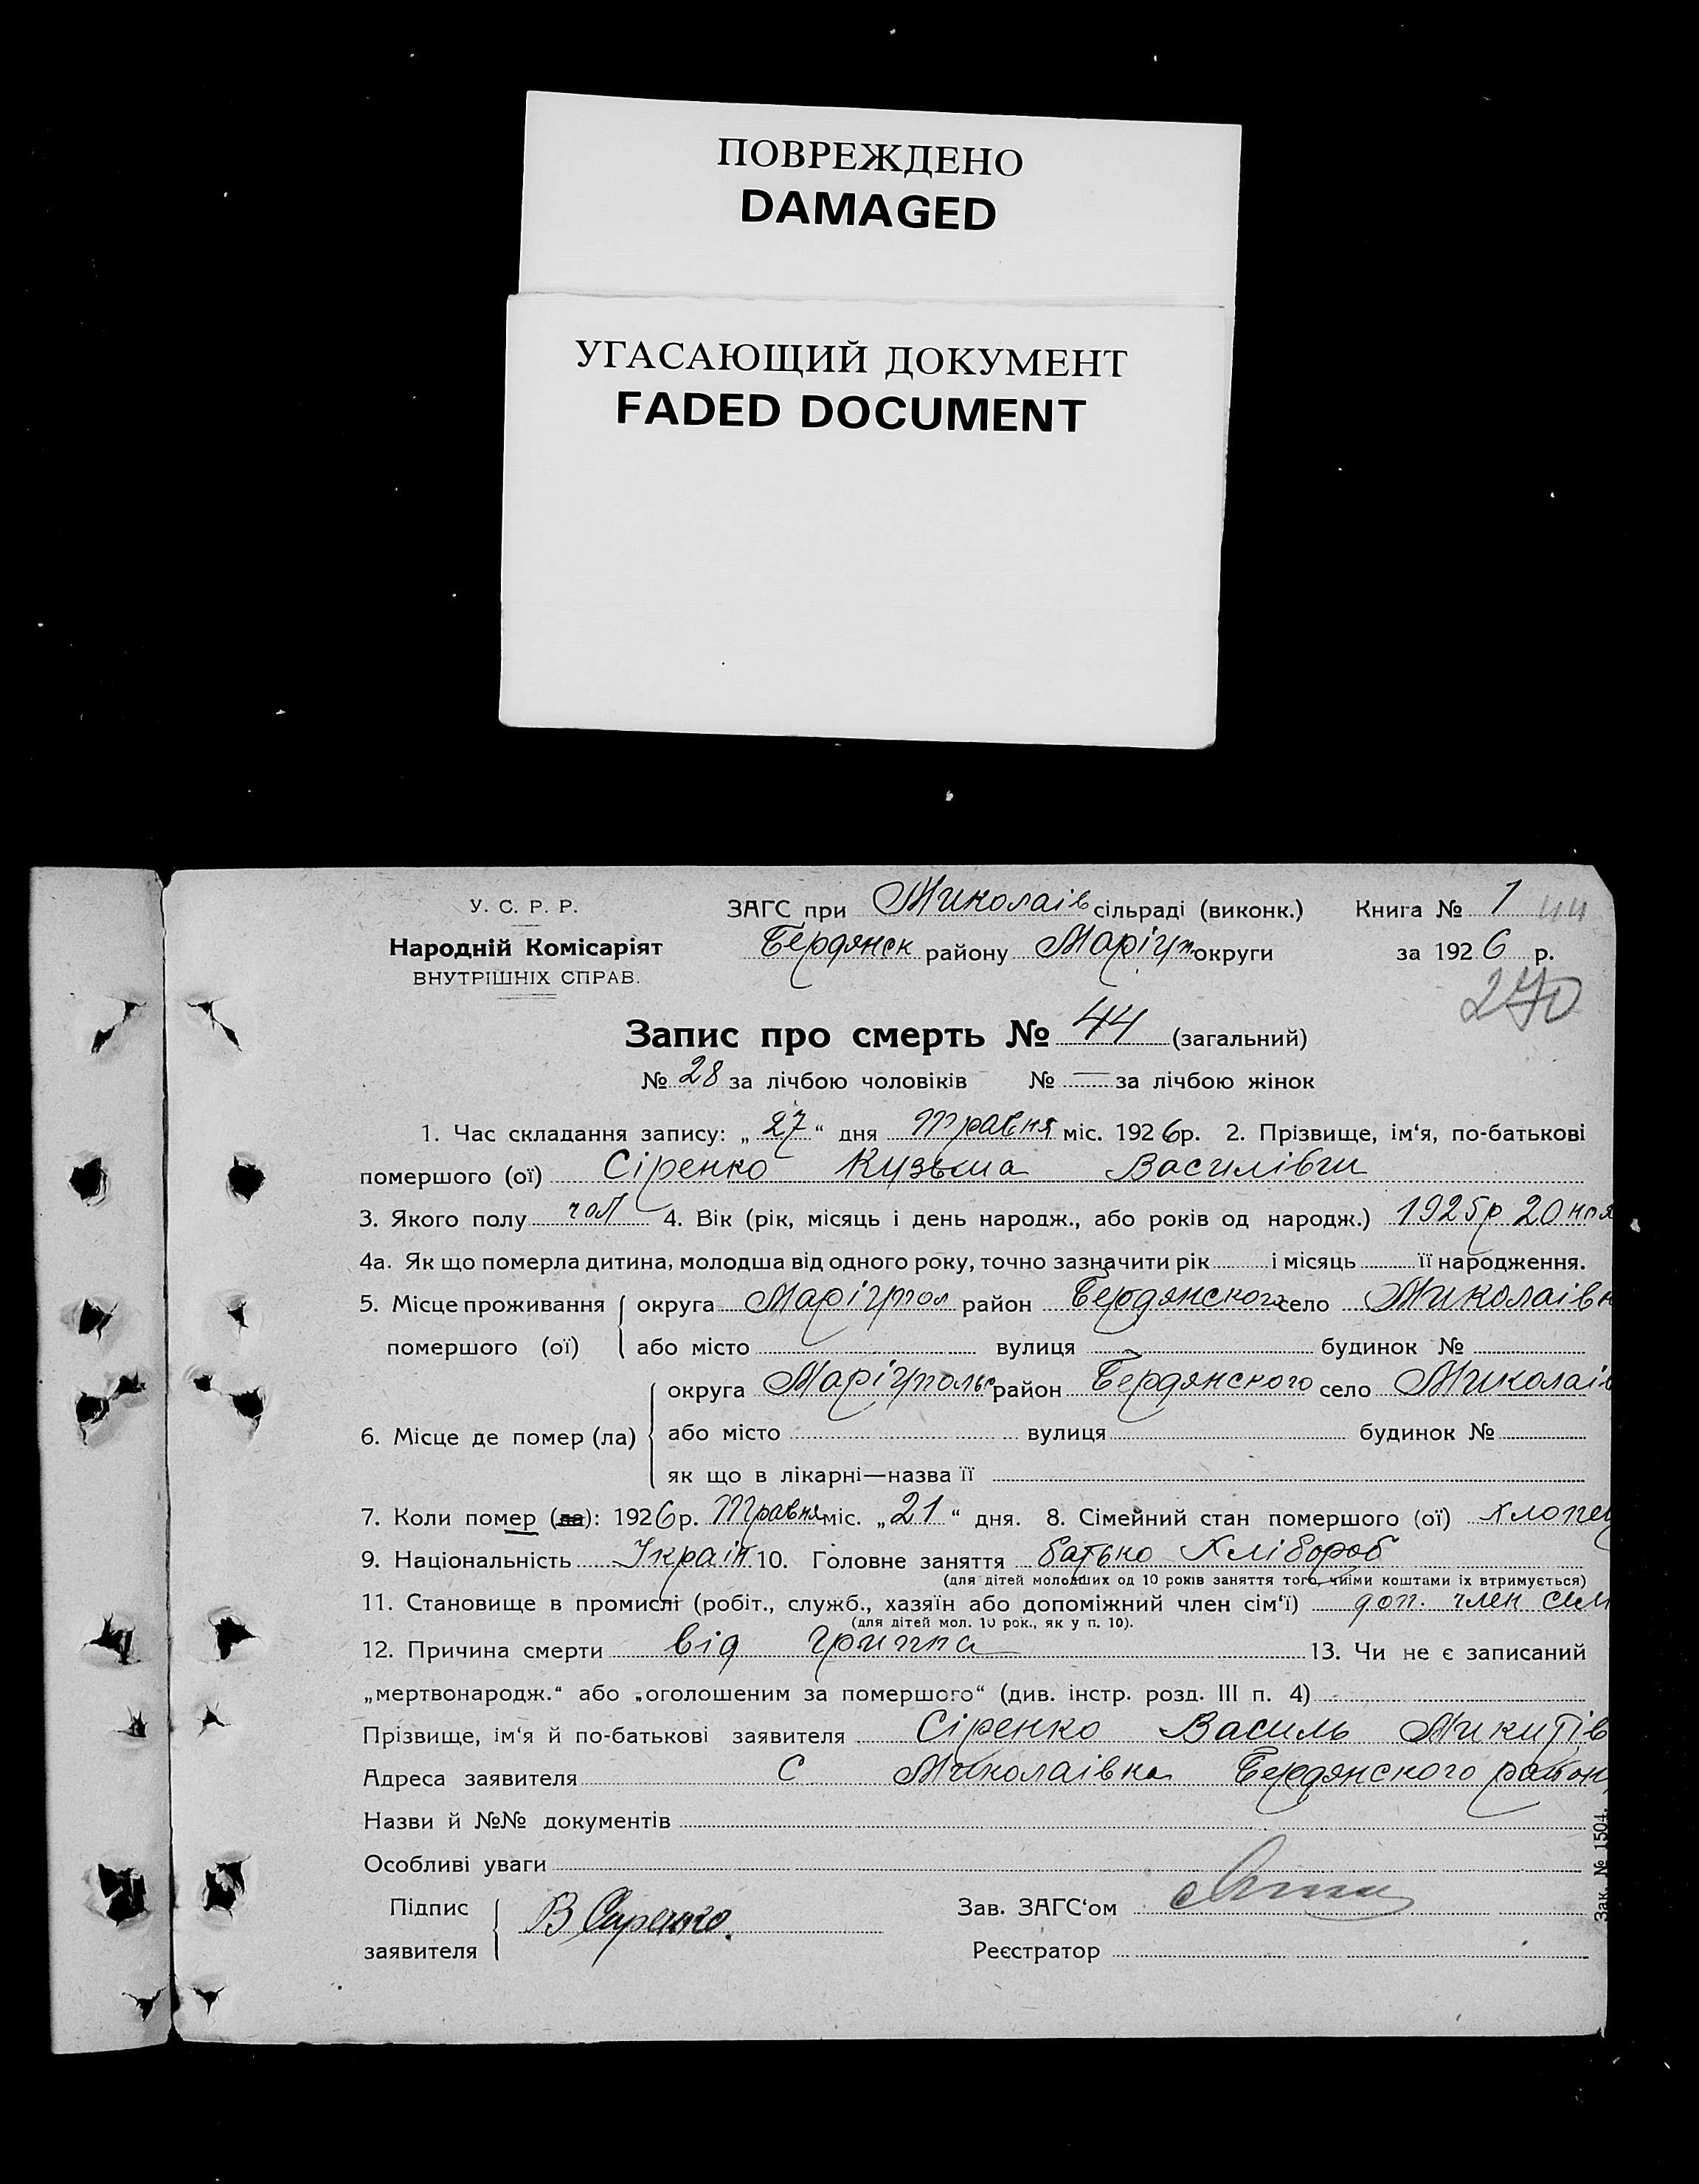 ПОВРЕЖДЕНО
DAMAGED
УГАСАЮЩИЙ ДОКУМЕНТ
FADED DOCUMENT
У. С. Р. Р.
Народній Комісаріят
ВНУТРІШНІХ СПРАВ.
ЗАГС при Миколаів сільраді (виконк.) Книга № 1 44
Бердянск району Маріуп. округи за 1926 р.
270
Запис про смерть № 44 (загальний)
№ 28 за лічбою чоловіків № — за лічбою жінок
1. Час складання запису: „27“ дня Травня міс. 1926р. 2. Прізвище, ім‘я, по-батькові
помершого (ої) Сіренко Кузьма Василівич
3. Якого полу чол 4. Вік (рік, місяць і день народж., або років од народж.) 1925р 20 ноя
4а. Як що померла дитина, молодша від одного року, точно зазначити рік і місяць її народження.
5. Місце проживання помершого (ої) округа Маріупол район Бердянского село Миколаівк
або місто вулиця будинок №
6. Місце де помер (ла) округа Маріупольс район Бердянского село Миколаів
або місто вулиця будинок №
як що в лікарні—назва її
7. Коли помер (ла): 1926р. Травня міс. „21“ дня. 8. Сімейний стан помершого (ої) хлопец
9. Національність Україн 10. Головне заняття батько Хлібороб
(для дітей молодших од 10 років заняття того, чиїми коштами їх втримується)
11. Становище в промислі (робіт., служб., хазяїн або допоміжний член сім‘ї) доп. член сим
(для дітей мол. 10 рок., як у п. 10).
12. Причина смерти від гриппа 13. Чи не є записаний
„мертвонародж.“ або „оголошеним за помершого“ (див. інстр. розд. III п. 4)
Прізвище, ім‘я й по-батькові заявителя Сіренко Василь Микитів
Адреса заявителя С Миколаівка Бердянского район
Назви й №№ документів
Особливі уваги
Підпис заявителя В Сиренко. Зав. ЗАГС‘ом
Реєстратор
Зак. № 1504.